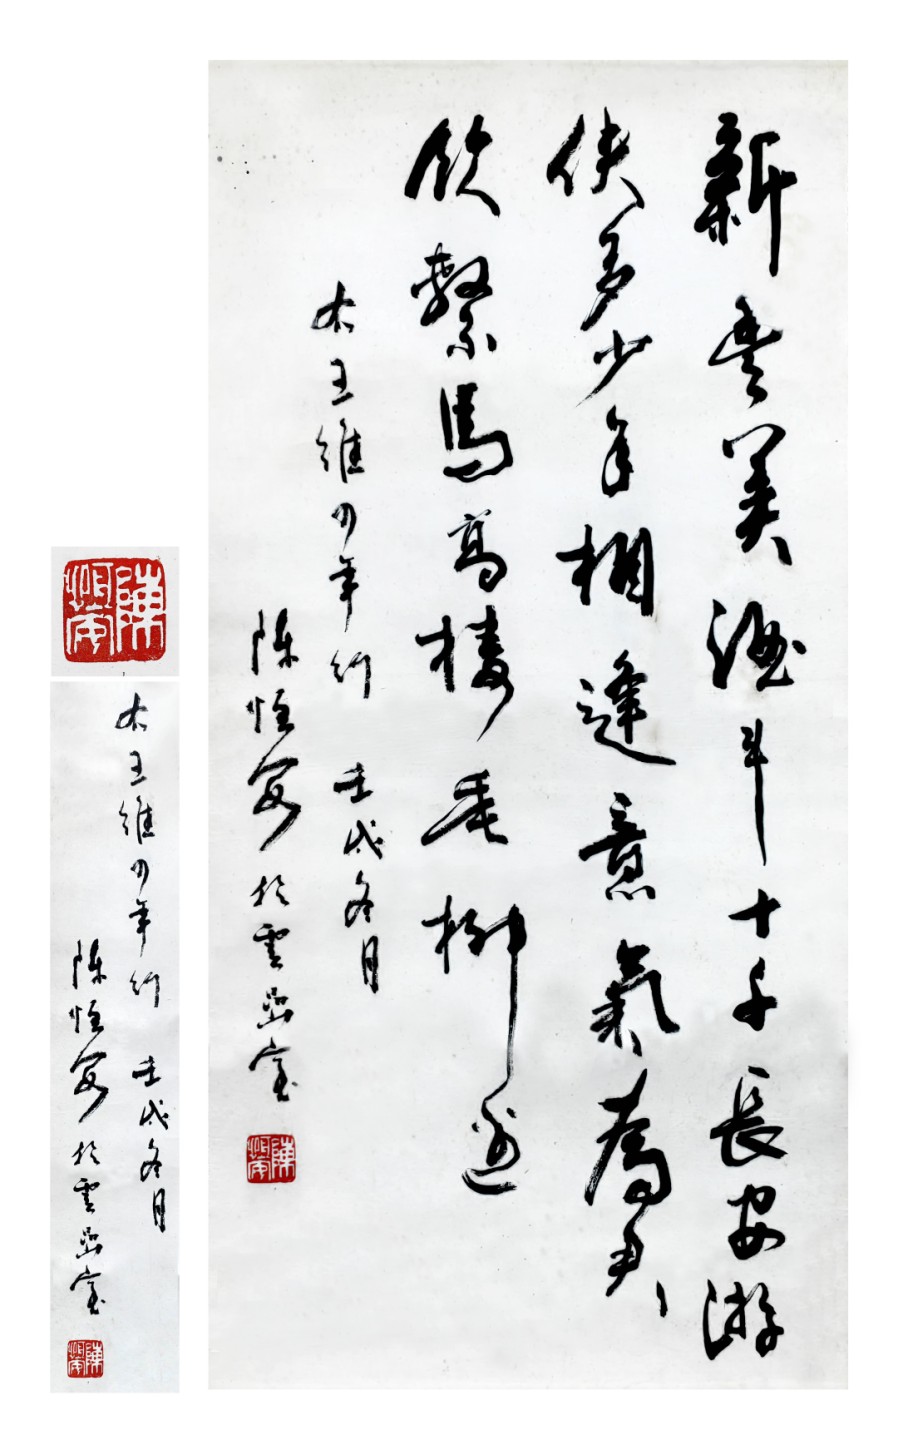 新豐美酒斗十千長安游
俠多少年相逢意氣為君
飲繫馬高樓垂柳邊
右王維少年行 壬戌冬月
陳恒安於雲嵒室
右王維少年行 壬戌冬月
陳恒安於雲嵒室